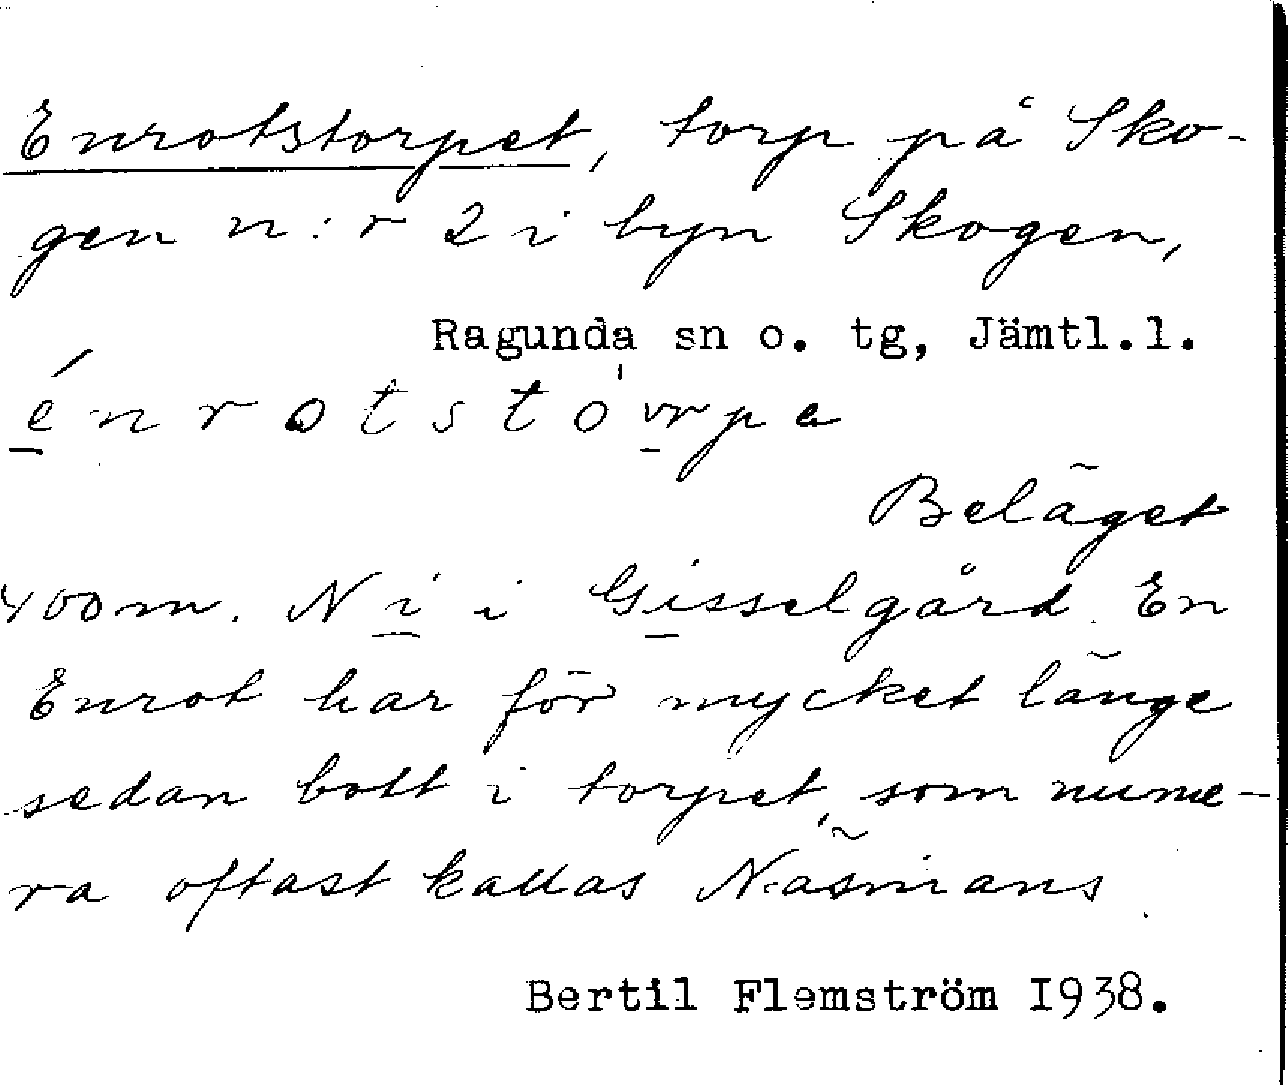 Enrotstorpet, torp på Sko-
gen n:r 2 i byn Skogen,
Ragunda sn o. tg, Jämtl.l.
énrotstórpe
Beläget
400 m. N i i Gisselgård. En
Enrot har för mycket länge
sedan bott i torpet, som nume-
ra oftast kallas Näsmans.
Bertil Flemström I938.